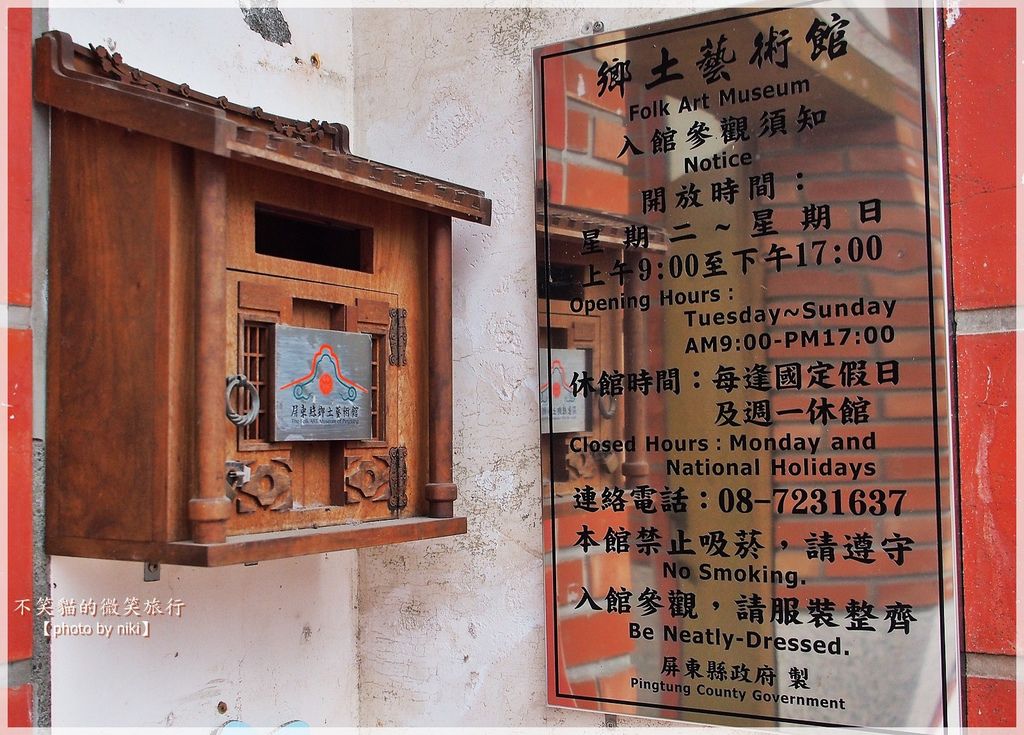 鄉土藝術館
Folk Art Museum
入館參觀須知
Notice
開放時間：
星期二~星期日
上午9:00至下午17:00
Opening Hours :
Tuesday~Sunday
AM9:00-PM17:00
休館時間：每逢國定假日
及週一休館
Closed Hours : Monday and
National Holidays
連絡電話：08-7231637
本館禁止吸菸，請遵守
No Smoking.
入館參觀，請服裝整齊
Be Neatly-Dressed.
屏東縣政府 製
Pingtung County Government
屏東縣鄉土藝術館
The Folk ART Museum of Pingtung
不笑貓的微笑旅行
【photo by niki】